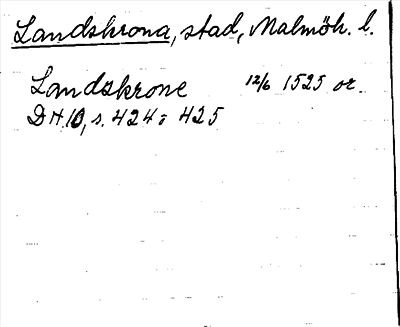 Landskrona, stad, Malmöh. l.
Landzkrone 12/6 1525 or.
DH.10, s. 424 = 425